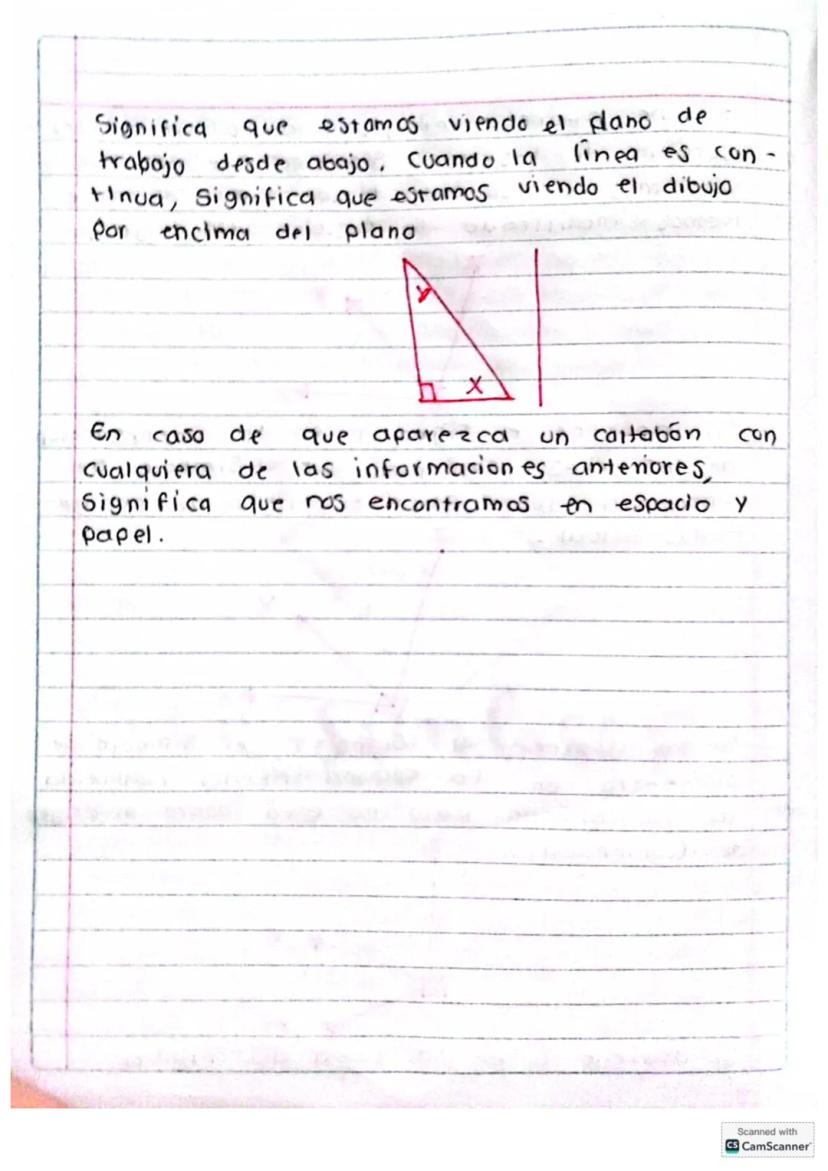 Significa que estamos viendo el plano de
trabajo desde abajo. Cuando la línea es con-
tinua, significa que estamos viendo el dibujo
por encima del plano
Y
X
En caso de que aparezca un cartabón con
cualquiera de las informaciones anteriores,
significa que nos encontramos en espacio y
papel.
Scanned with
CS CamScanner